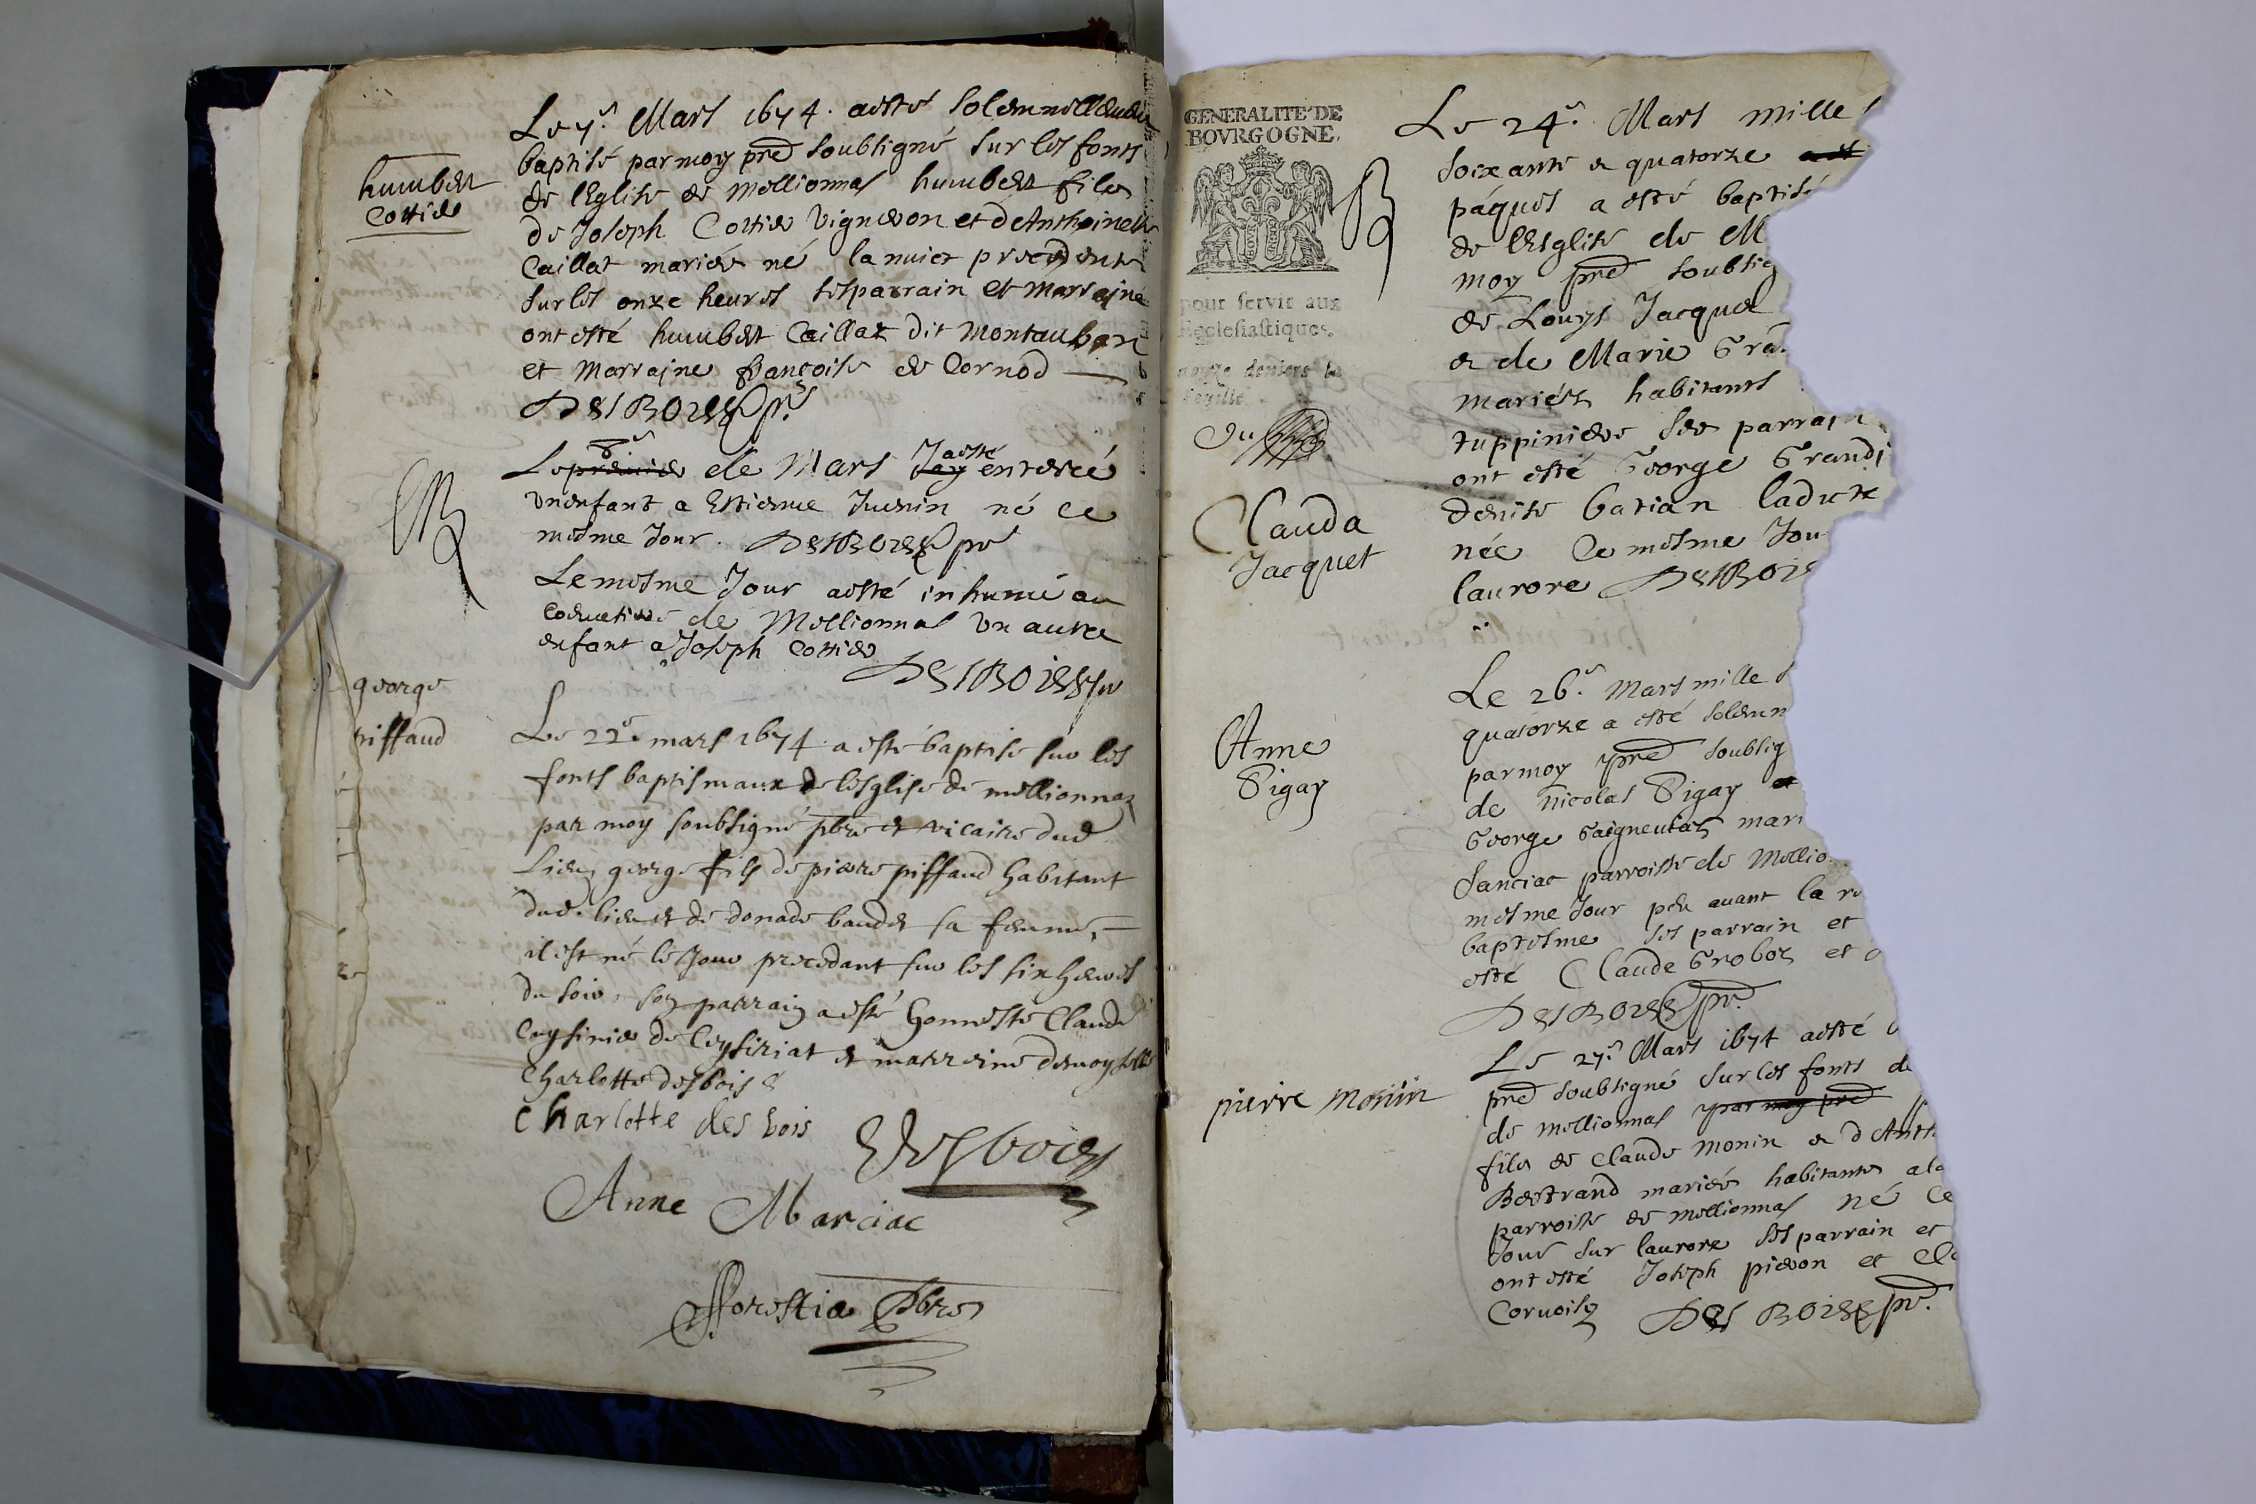 humbert
Cottier
Le 7e. Mars 1674. aesté solemnellem
baptisé par moy pre soubsigné sur les fonts
de l'Eglise de Mellionnas humbert fils
de Joseph Cottier vigneron et d'Anthoinette
Caillat mariés né la nuict precedente
sur les onze heures ses parrain et marraine
ont esté humbert Caillat dit montauban
et marraine françoise de Cornod
DESBOIS pr
Le premier 8e de Mars J'ay aesté enterré
un enfant a Estienne Juenin né ce
mesme Jour. DESBOIS pr
Le mesme Jour aesté inhumé au
cemetiere de Mellionnas un autre
enfant a Joseph Cottier
DESBOIS pr
george
piffaud
Le 22e mars 1674 a esté baptisé sur les
fonts baptismaux de lesglise de mellionnaz
par moy soubsigné pbre et vicaire dud
Lieu, george fils de pierre piffaud habitant
dud. lieu et de donade baudet sa femme,
il est né le Jour precedant sur les six heures
du soir, son parrain a esté honneste Claude
Ceysirier de Ceysiriat et marreine demoyselle
Charlotte desbois
charlotte des bois
Desbois
Anne Marciac
fforestier Pbre
GENERALITE DE
BOVRGOGNE.
pour servir aux
Ecclesiastiques.
deniers la
feuille
Du
Clauda
Jacquet
Le 24e. Mars mille s
soixante & quatorze
páques a esté baptisé
de l'Esglise de M
moy pre soubsig
de Louys Jacquet
& de Marie Gra
mariés habitants
tuppiniere ses parrain
ont esté George Grandj
denise barian ladicte
née ce mesme Jou
laurore DESBOIS
Anne
Pigay
Le 26e. Mars mille s
quatorze a esté solemn
par moy pre soubsig
de nicolas Pigay et
George Gaigneulas mari
Sanciac parroisse de Mellio
mesme Jour peu avant la
baptesme ses parrain et
esté Claude Groboz et
DESBOIS pr.
pierre monin
Le 27e. Mars 1674 aesté
pre soubsigné sur les fonts de
de mellionnas par moy pre
fils de Claude monin & d'Anth
Bertrand mariés habitants a la
parroisse de mellionnas né ce
Jour sur laurore ses parrain et
ont esté Joseph pieron et Cla
Corvoisy DESBOIS pr.